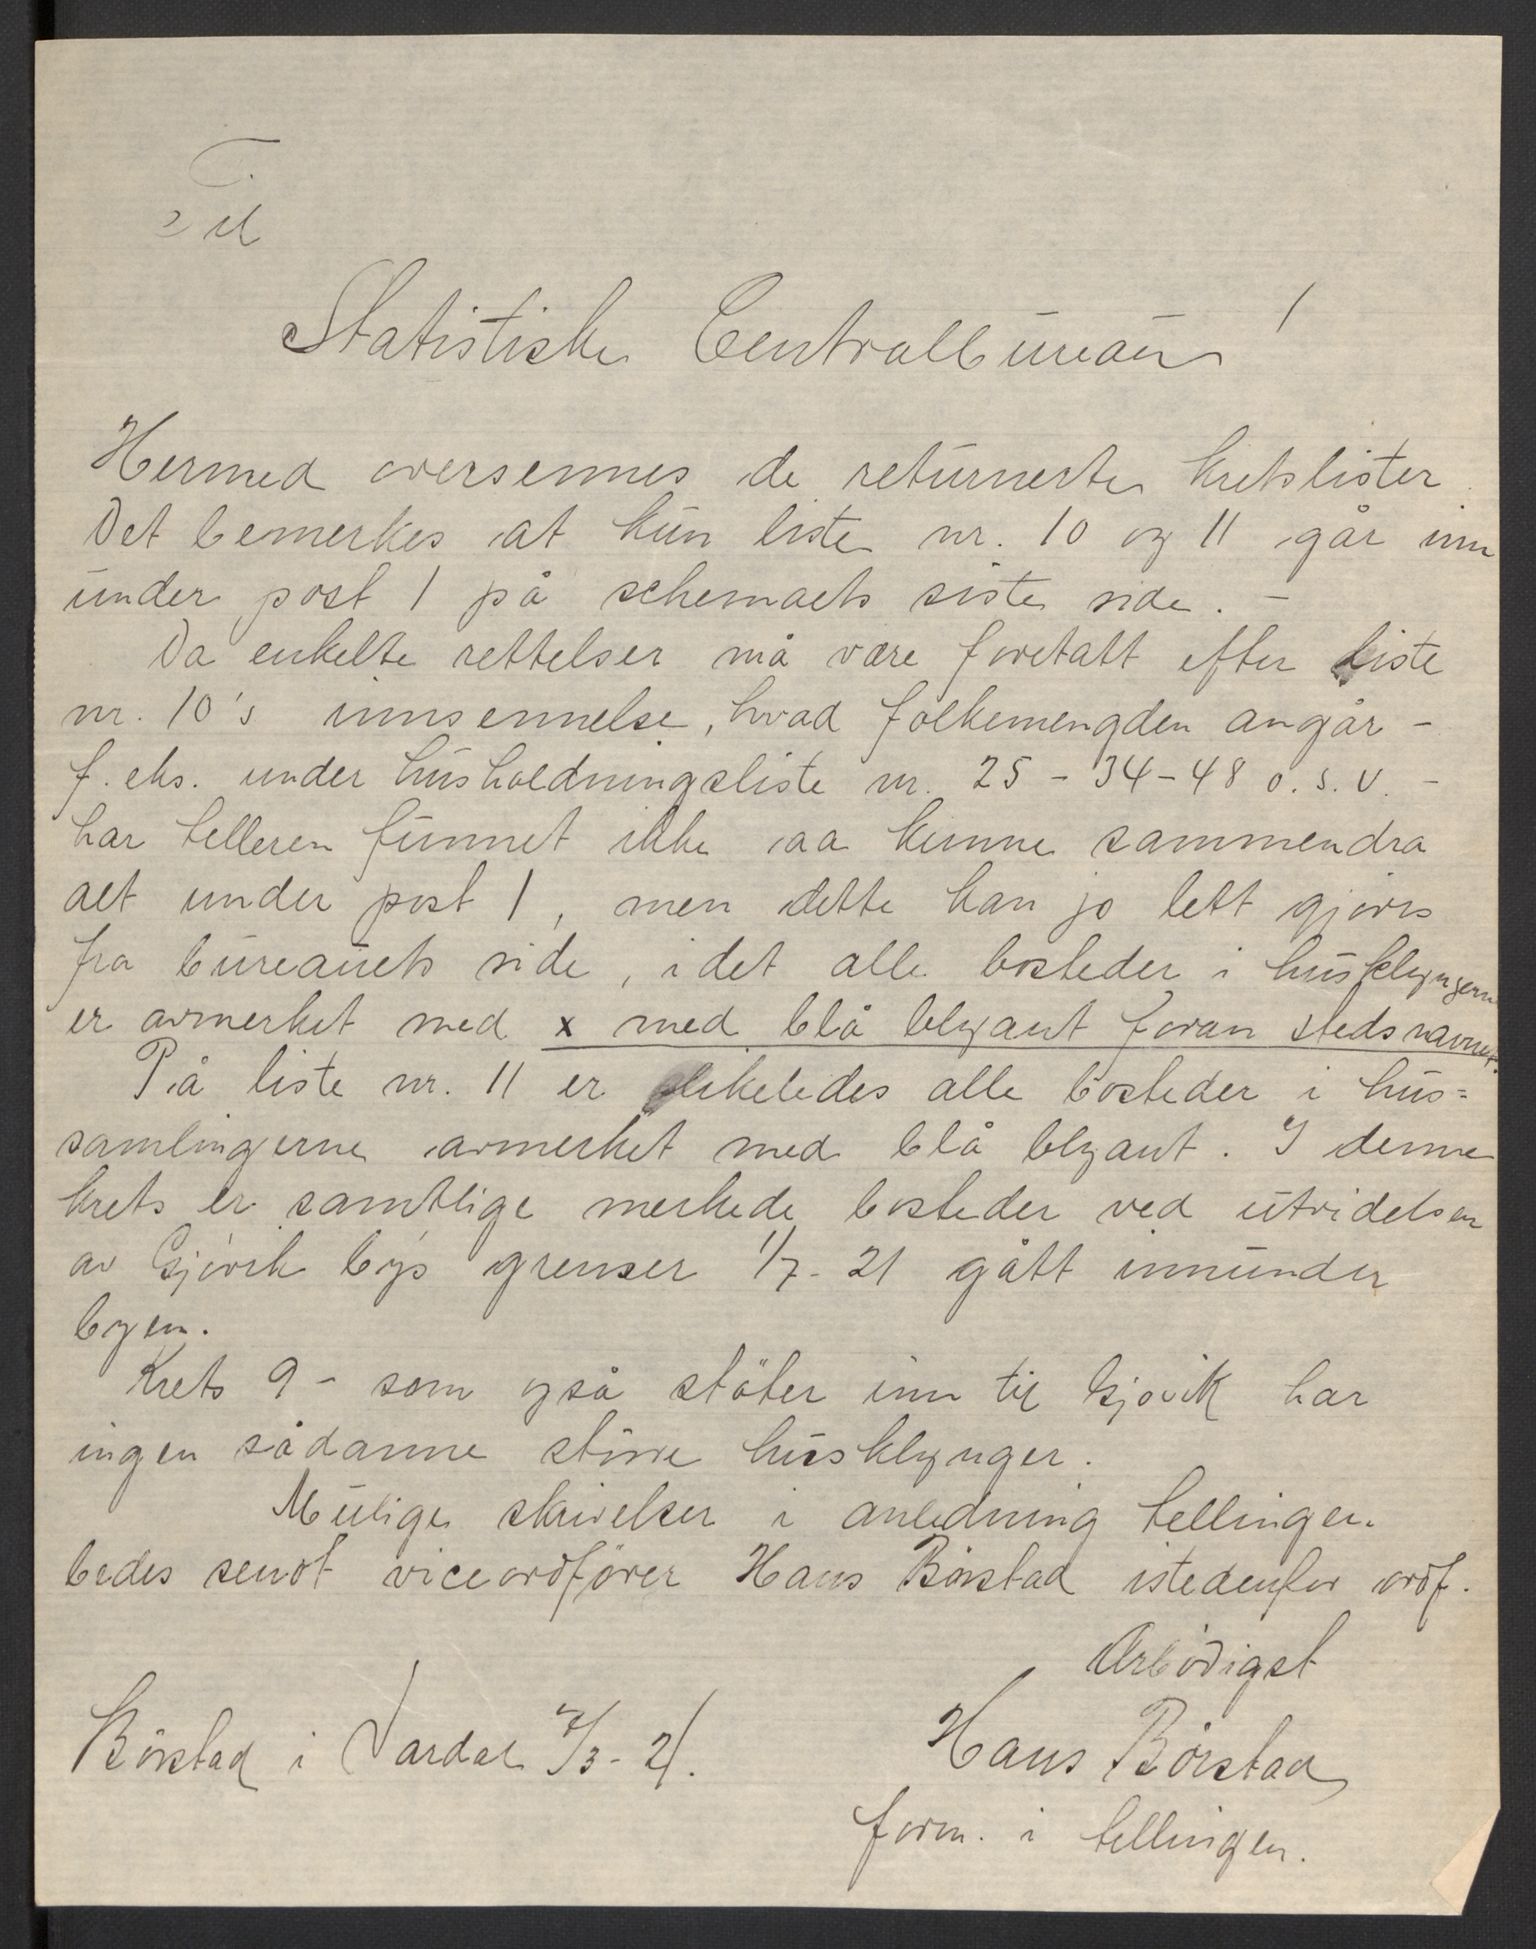 Til
Statistiske Centralbureau!
Hermed oversennes de returnerte kretslister.
Det bemerkes at kun liste nr. 10 og 11 går inn
under post 1 på schemaets siste side. –
Da enkelte rettelser må være foretatt efter liste
nr. 10's innsennelse, hvad folkemengden angår –
f. eks. under husholdningsliste nr. 25 – 34 – 48 o. s. v. –
har telleren funnet ikke aa kunne sammendra
alt under post 1, men dette kan jo lett gjøres
fra bureauets side, idet alle bosteder i husklyngerne
er avmerket med x med blå blyant foran stedsnavnet.
På liste nr. 11 er likeledes alle bosteder i hus=
samlingerne avmerket med blå blyant. I denne
krets er samtlige merkede bosteder ved utvidelsen
av Gjøvik bys grenser 1/7 - 21 gått innunder
byen.
Krets 9 – som også støter inn til Gjøvik har
ingen sådanne større husklynger.
Mulige skrivelser i anledning tellingen
bedes sendt viceordfører Hans Børstad istedenfor ordf.
Ærbødigst
Børstad i Vardal 7/3 - 21. Hans Børstad
form. i tellingen.